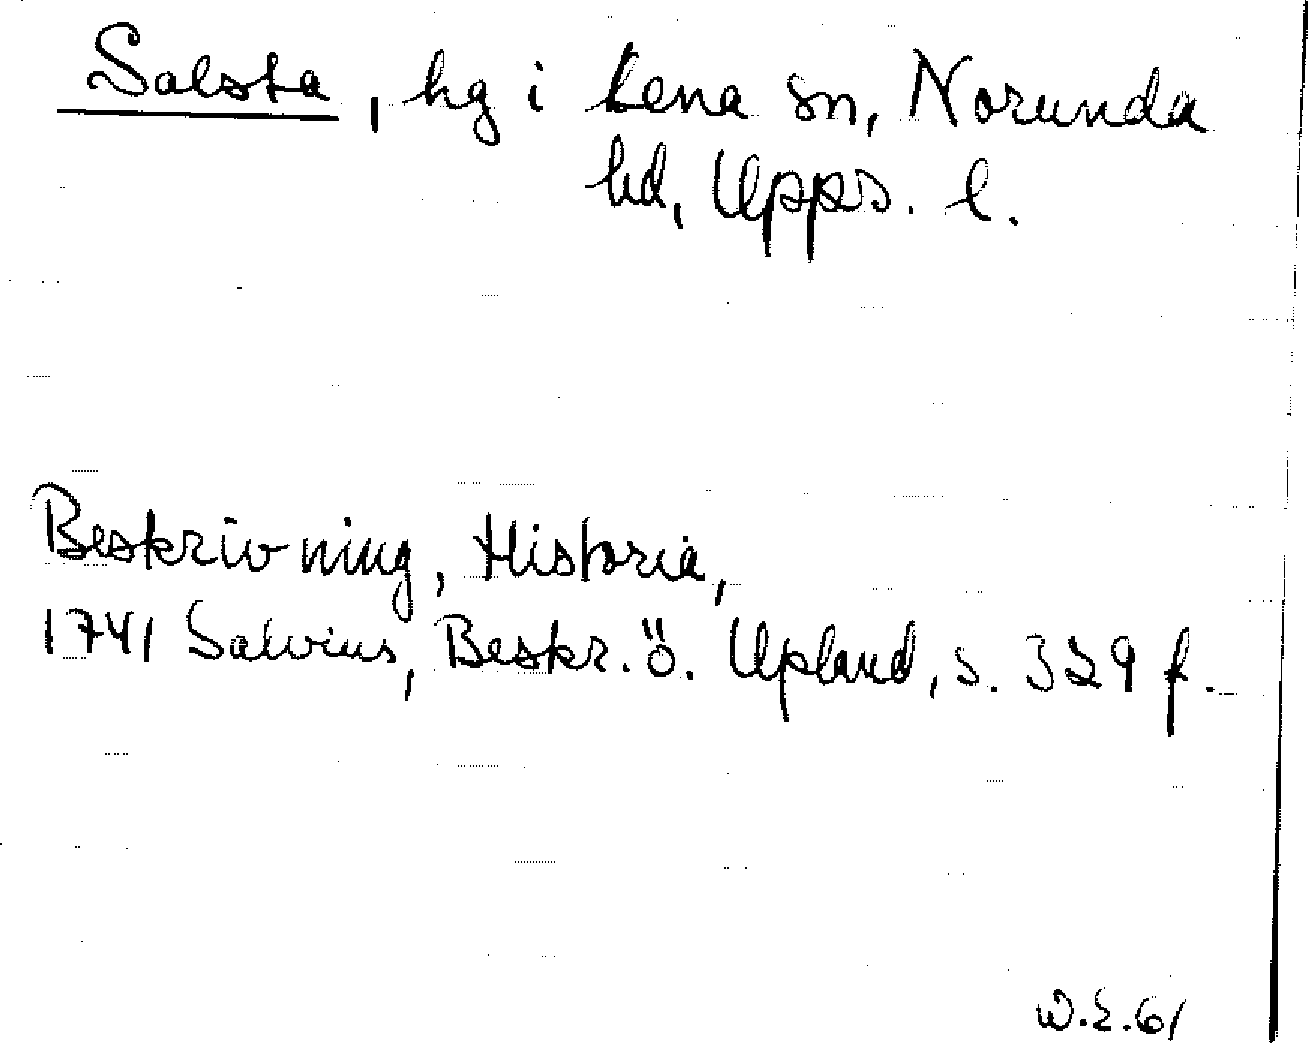 Salsta, hg i Lena sn, Norunda
hd, Upps. l.
Beskrivning, Historia,
1741 Salvius, Beskr. ö. Upland, s. 329 f.
W.E.61